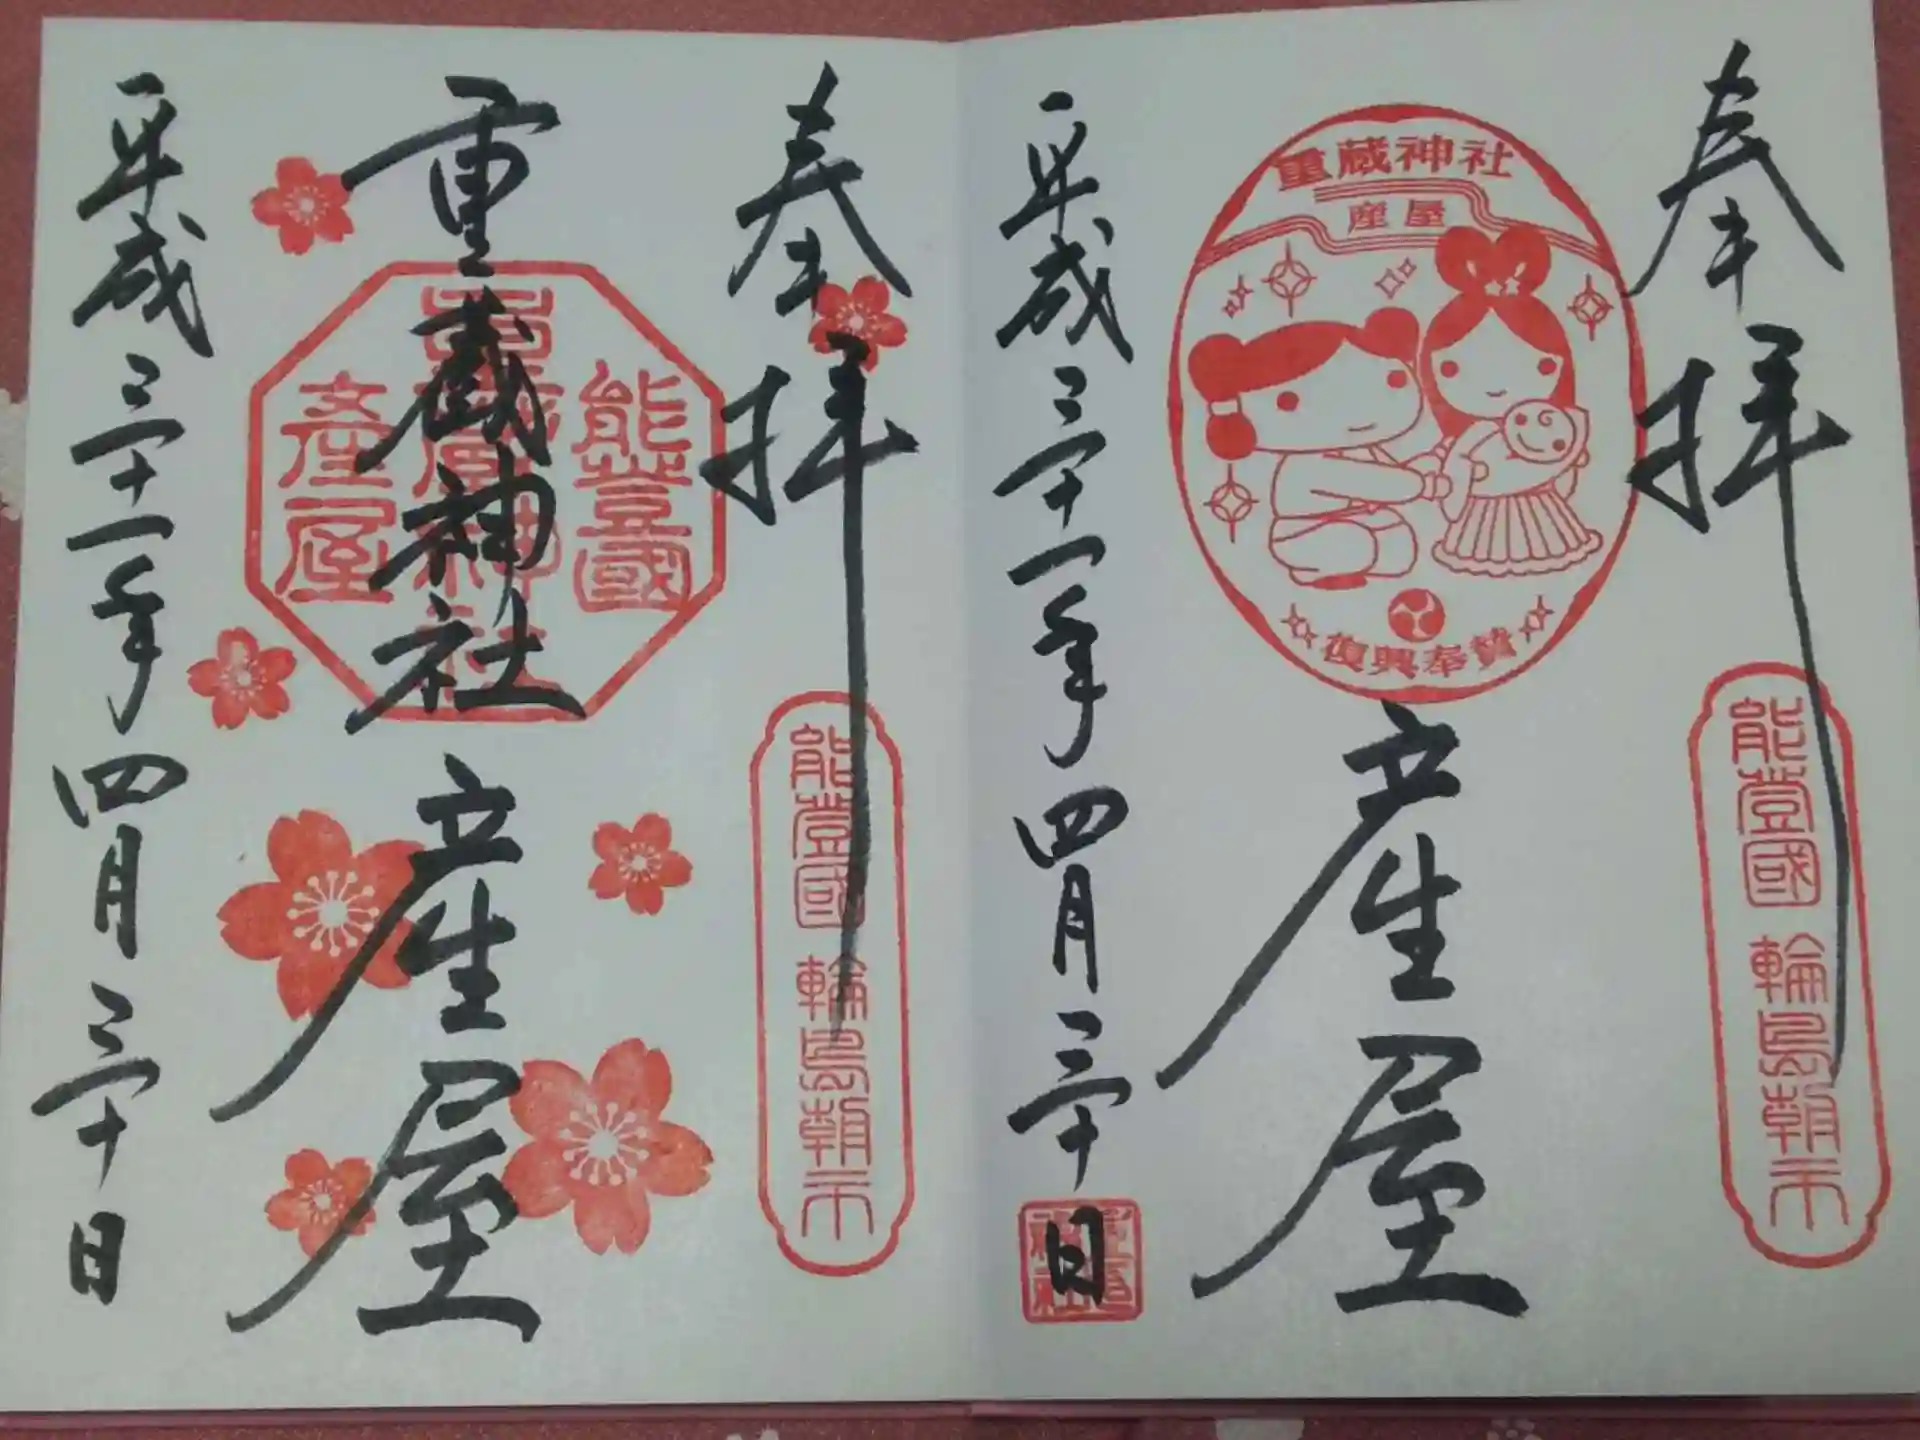 奉拝
重蔵神社
産屋
復興奉賛
産屋
能登國 輪島朝市
平成三十一年四月三十日
重蔵神社
奉拝
能登國
重蔵神社
産屋
重蔵神社 産屋
能登國 輪島朝市
平成三十一年四月三十日